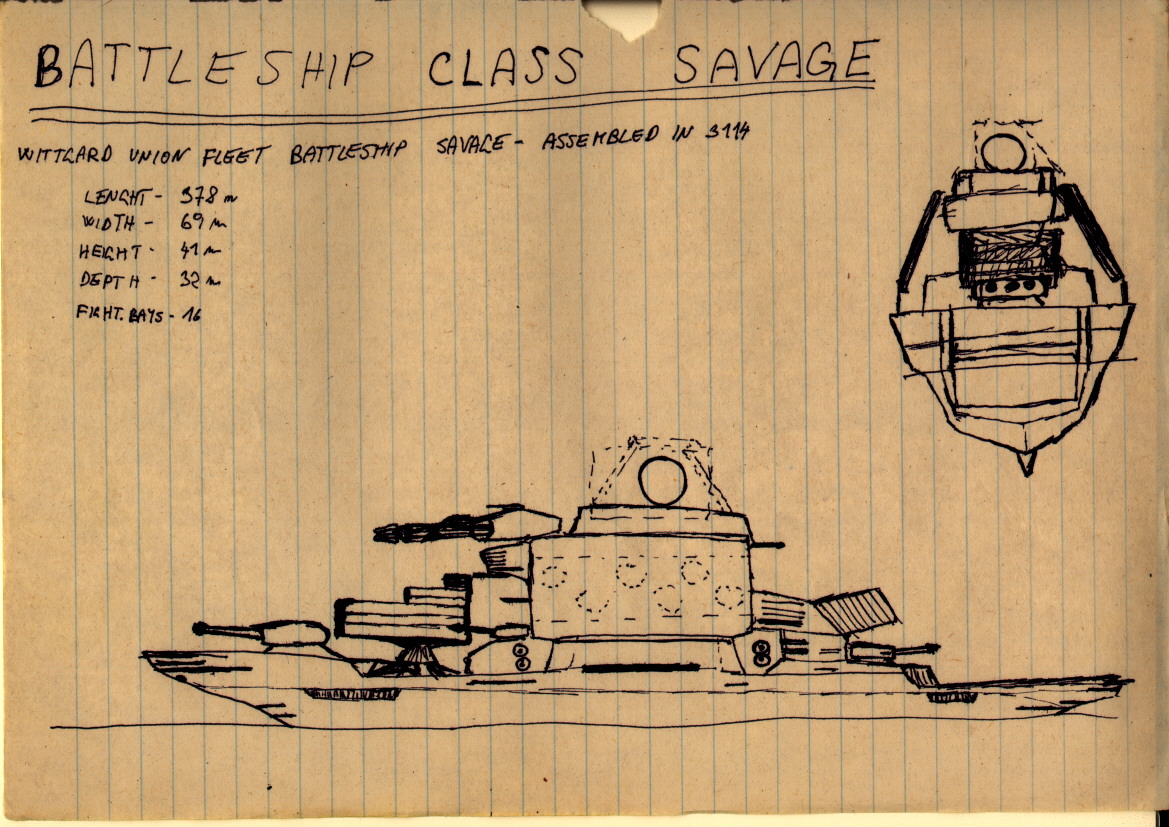 BATTLESHIP CLASS SAVAGE
WITTGARD UNION FLEET BATTLESHIP SAVAGE - ASSEMBLED IN 3114
LENGHT - 378 m
WIDTH - 69 m
HEIGHT - 41 m
DEPTH - 32 m
FIGHT. BAYS - 16